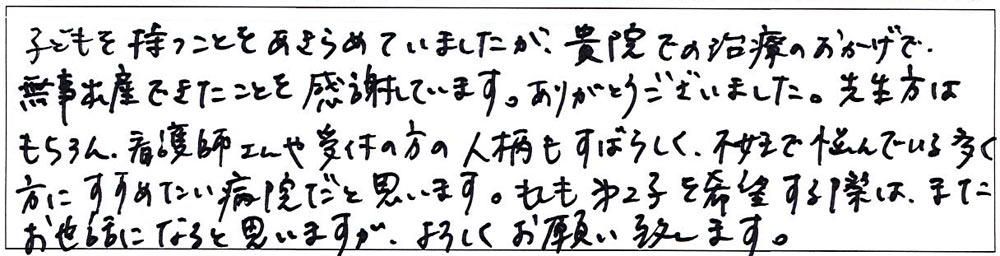 子どもを持つことをあきらめていましたが、貴院での治療のおかげで、
無事出産できたことを感謝しています。ありがとうございました。先生方は
もちろん、看護師さんや受付の方の人柄もすばらしく、不妊で悩んでいる多く
方にすすめたい病院だと思います。私も第2子を希望する際は、また
お世話になると思いますが、よろしくお願い致します。